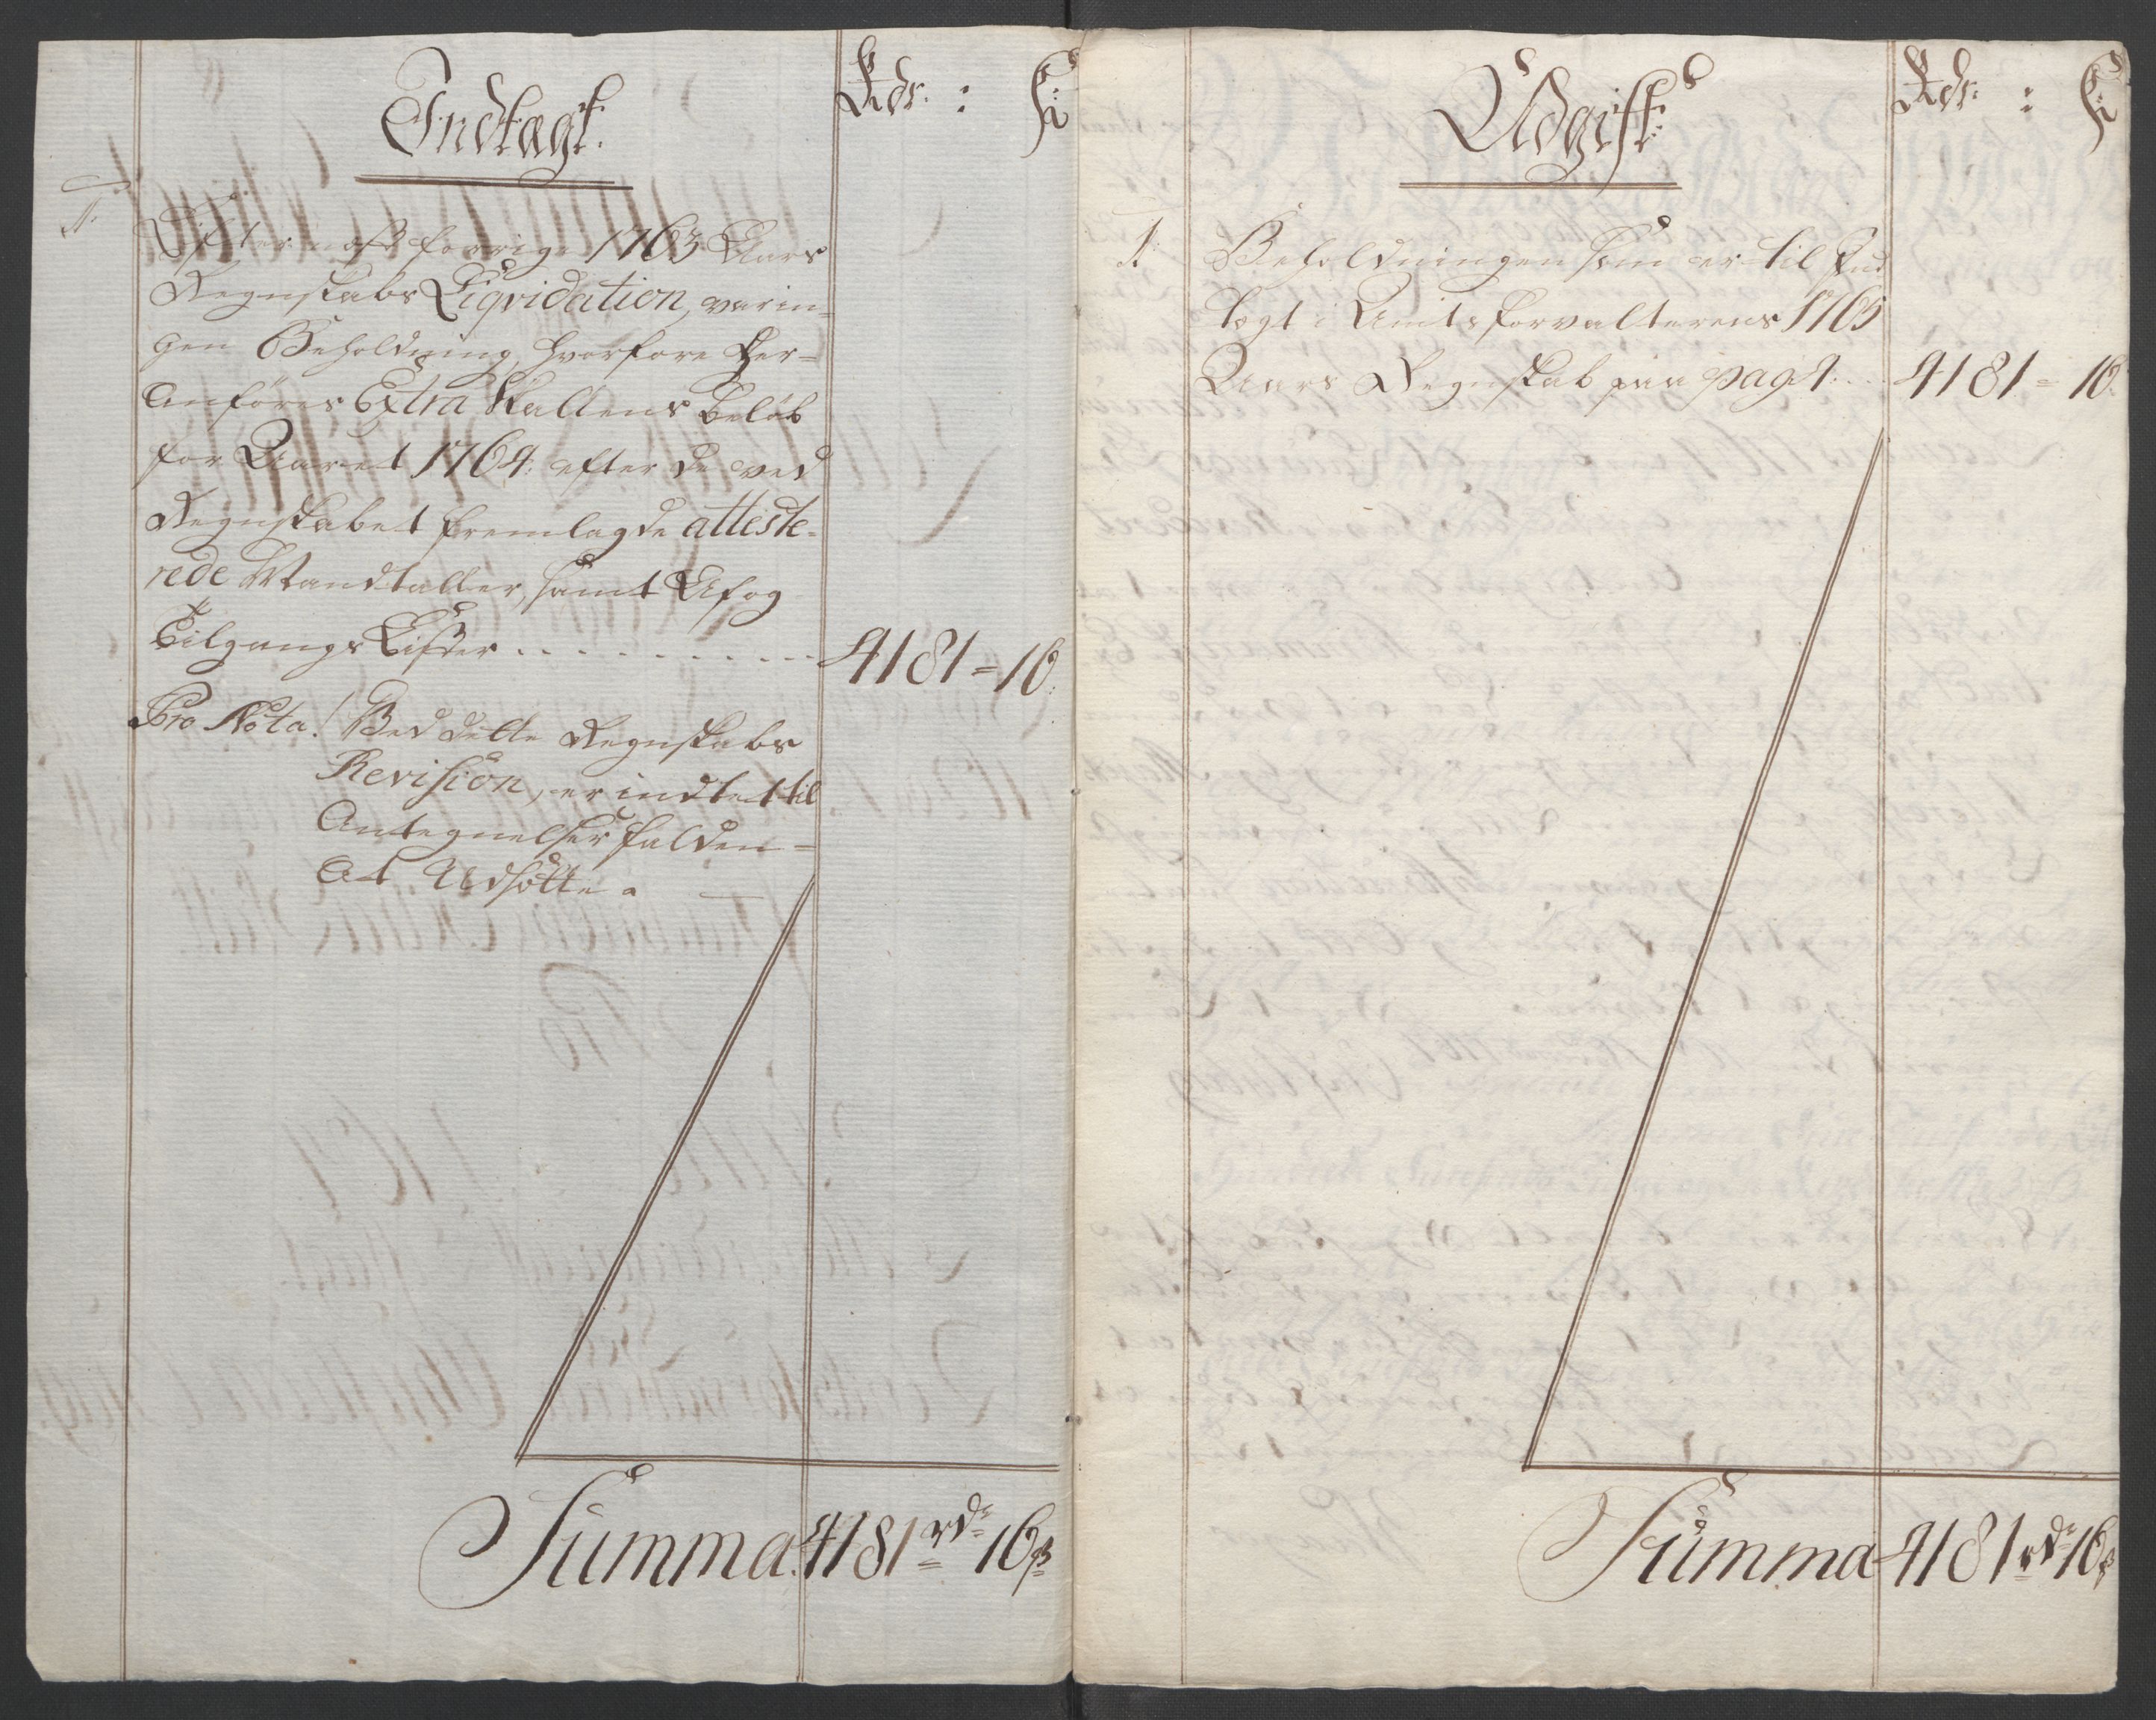 Indtægt.
Rdr. : ß
1. Efter næst forrige 1763 Aars
Regnskabs Liqvidation, var in-
gen Beholdning, hvorfore her-
anføres Extra Skattens beløb
for Aaret 1764: efter de ved
Regnskabet fremlagde atteste-
rede Mandtaller, samt Af og
Tilgangs Lister . . . . . . . . . . 4181 = 16.
Pro Nota. / Ved dette Regnskabs
Revision, er indtet til
Antegnelser falden
At Udsætte.
Summa. 4181 rdr 16 ß
Udgift.
Rdr. : ß
1. Beholdningen som er til Ind
tægt i Amtsforvalterens 1765
Aars Regnskab paa pag 1. . . 4181 = 16.
Summa 4181 rdr 16 ß